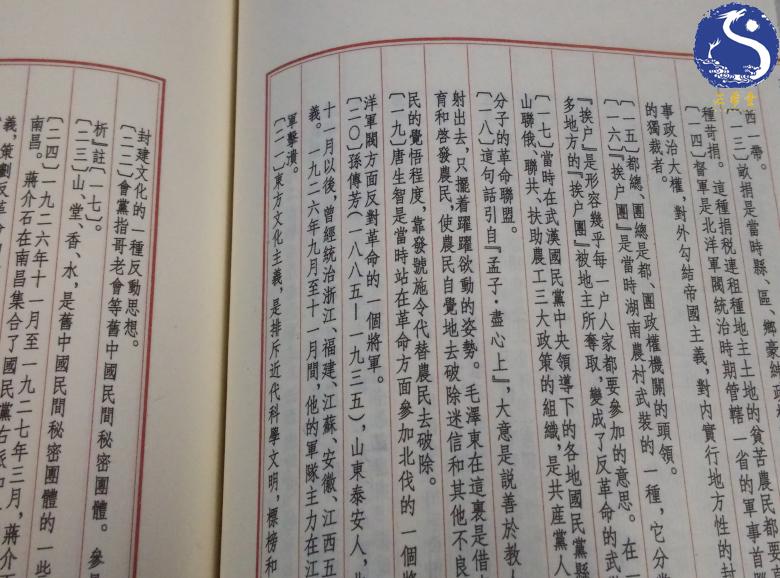 西一帶。
〔一三〕畝捐是當時縣、區、鄉豪紳政
種苛捐。這種捐税連租種地主土地的貧苦農民都要
〔一四〕督軍是北洋軍閥統治時期管轄一省的軍事首
事政治大權，對外勾結帝國主義，對内實行地方性的封
的獨裁者。
〔一五〕都總、團總是都、團政權機關的頭領。
〔一六〕『挨户團』是當時湖南農村武裝的一種，它分
『挨户』是形容幾乎每一户人家都要參加的意思。在一
多地方的『挨户團』被地主所奪取，變成了反革命的武
〔一七〕當時在武漢國民黨中央領導下的各地國民黨縣
山聯俄、聯共、扶助農工三大政策的組織，是共産黨人
分子的革命聯盟。
〔一八〕這句話引自『孟子·盡心上』，大意是説善於教人
射出去，只擺着躍躍欲動的姿勢。毛澤東在這裏是借
育和啓發農民，使農民自覺地去破除迷信和其他不良
民的覺悟程度，靠發號施令代替農民去破除。
〔一九〕唐生智是當時站在革命方面參加北伐的一個將
洋軍閥方面反對革命的一個將軍。
〔二〇〕孫傳芳（一八八五—一九三五），山東泰安人，
十一月以後，曾經統治浙江、福建、江蘇、安徽、江西五
義。一九二六年九月至十一月間，他的軍隊主力在江
軍擊潰。
〔二一〕東方文化主義，是排斥近代科學文明，標榜和
封建文化的一種反動思想。
〔二二〕會黨指哥老會等舊中國民間秘密團體。參
析』註〔一七〕。
〔二三〕山、堂、香、水，是舊中國民間秘密團體的一些
〔二四〕一九二六年十一月至一九二七年三月，蔣介
南昌。蔣介石在南昌集合了國民黨右派和
義，策劃反革命